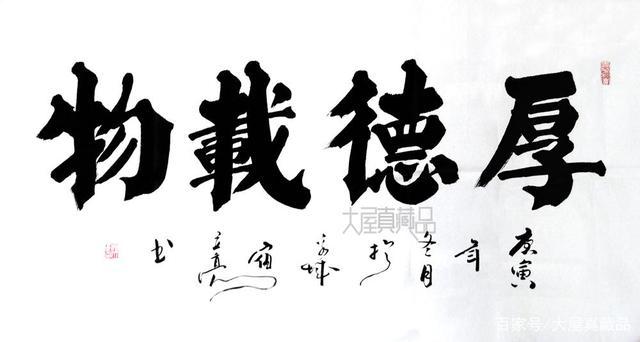 厚德載物
庚寅年冬月於京城书
大屋真藏品
百家号/大屋真藏品